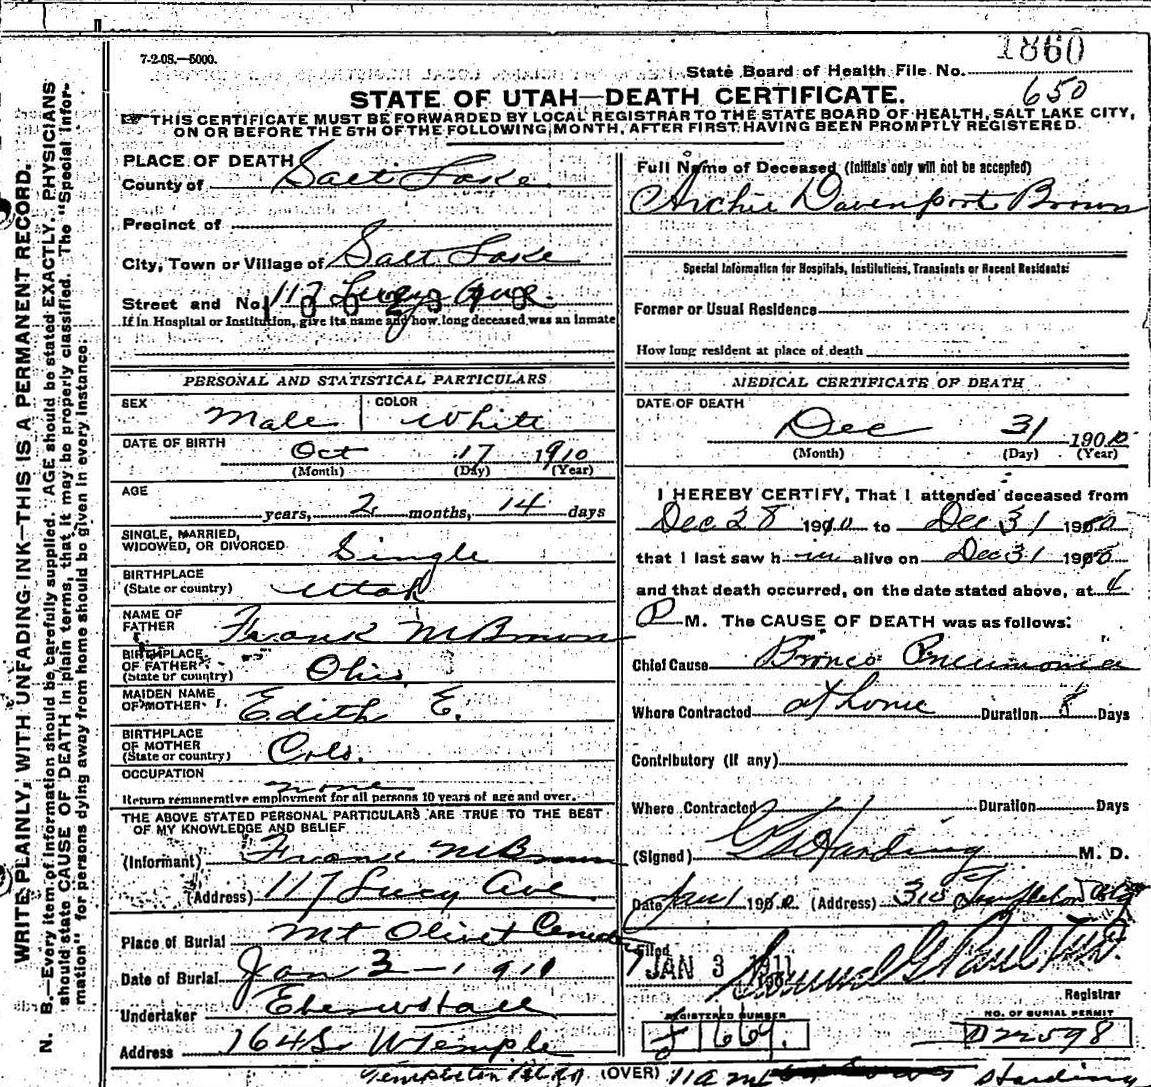 7-2-08.—5000.
1860
State Board of Health File No.
650
STATE OF UTAH—DEATH CERTIFICATE.
THIS CERTIFICATE MUST BE FORWARDED BY LOCAL REGISTRAR TO THE STATE BOARD OF HEALTH, SALT LAKE CITY,
ON OR BEFORE THE 5TH OF THE FOLLOWING MONTH, AFTER FIRST HAVING BEEN PROMPTLY REGISTERED.
WRITE PLAINLY, WITH UNFADING INK—THIS IS A PERMANENT RECORD.
N. B.—Every item of information should be carefully supplied. AGE should be stated EXACTLY. PHYSICIANS
should state CAUSE OF DEATH in plain terms, that it may be properly classified. The "Special Infor-
mation" for persons dying away from home should be given in every instance.
PLACE OF DEATH
County of Salt Lake
Precinct of
City, Town or Village of Salt Lake
Street and No. 117 Lucy Ave
If in Hospital or Institution, give its name and how long deceased was an inmate
PERSONAL AND STATISTICAL PARTICULARS
SEX Male COLOR White
DATE OF BIRTH Oct 17 1910
(Month) (Day) (Year)
AGE
years, 2 months, 14 days
SINGLE, MARRIED,
WIDOWED, OR DIVORCED Single
BIRTHPLACE
(State or country) Utah
NAME OF
FATHER Frank M Brown
BIRTHPLACE
OF FATHER
(State or country) Ohio
MAIDEN NAME
OF MOTHER Edith E.
BIRTHPLACE
OF MOTHER
(State or country) Colo.
OCCUPATION
none
Return remunerative employment for all persons 10 years of age and over.
THE ABOVE STATED PERSONAL PARTICULARS ARE TRUE TO THE BEST
OF MY KNOWLEDGE AND BELIEF
(Informant) Frank M Brown
(Address) 117 Lucy Ave
Place of Burial Mt Olivet
Date of Burial Jan 3 - 1911
Undertaker
Address 164 So W Temple
Full Name of Deceased (Initials only will not be accepted)
Archie Davenport Brown
Special Information for Hospitals, Institutions, Transients or Recent Residents:
Former or Usual Residence
How long resident at place of death
MEDICAL CERTIFICATE OF DEATH
DATE OF DEATH
Dec 31 1910
(Month) (Day) (Year)
I HEREBY CERTIFY, That I attended deceased from
Dec 28 1910 to Dec 31 1910
that I last saw h im alive on Dec 31 1910
and that death occurred, on the date stated above, at 4
P M. The CAUSE OF DEATH was as follows:
Chief Cause Bronco Pneumonia
Where Contracted at home Duration 8 Days
Contributory (If any)
Where Contracted Duration Days
(Signed) Harding M. D.
Date Jan 1 (Address) 310 Templeton Bldg
Filed
JAN 3 1911
Registrar
REGISTERED NUMBER
NO. OF BURIAL PERMIT
22598
Templeton Bldg (OVER) 11 am Harding